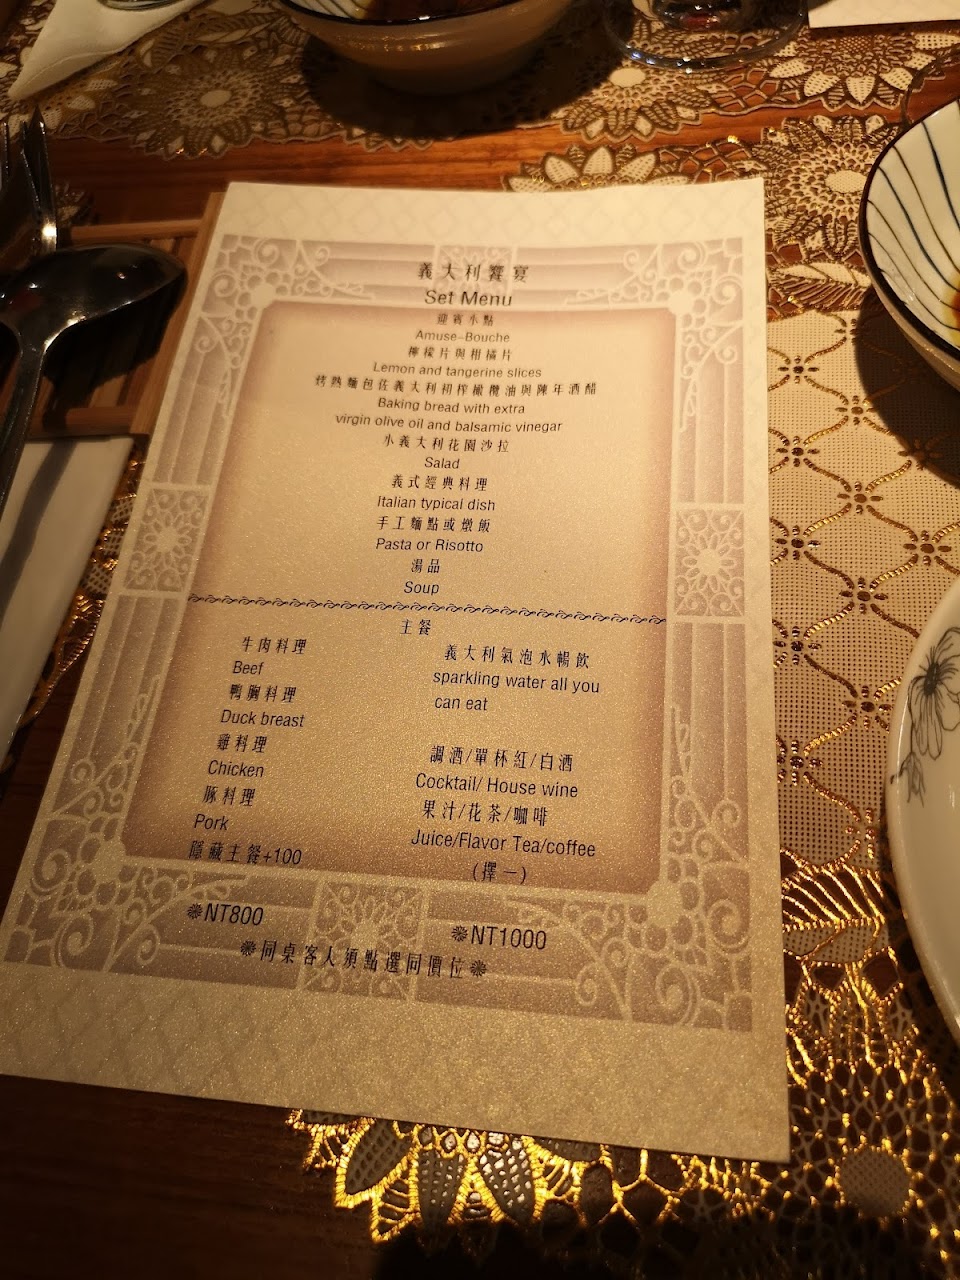 義大利饗宴
Set Menu
迎賓小點
Amuse-Bouche
檸檬片與柑橘片
Lemon and tangerine slices
烤熱麵包佐義大利初榨橄欖油與陳年酒醋
Baking bread with extra
virgin olive oil and balsamic vinegar
小義大利花園沙拉
Salad
義式經典料理
Italian typical dish
手工麵點或燉飯
Pasta or Risotto
湯品
Soup
主餐
牛肉料理
Beef
鴨胸料理
Duck breast
雞料理
Chicken
豚料理
Pork
隱藏主餐+100
義大利氣泡水暢飲
sparkling water all you
can eat
調酒/單杯紅/白酒
Cocktail/ House wine
果汁/花茶/咖啡
Juice/Flavor Tea/coffee
(擇一)
❊NT800
❊NT1000
❊同桌客人須點選同價位❊